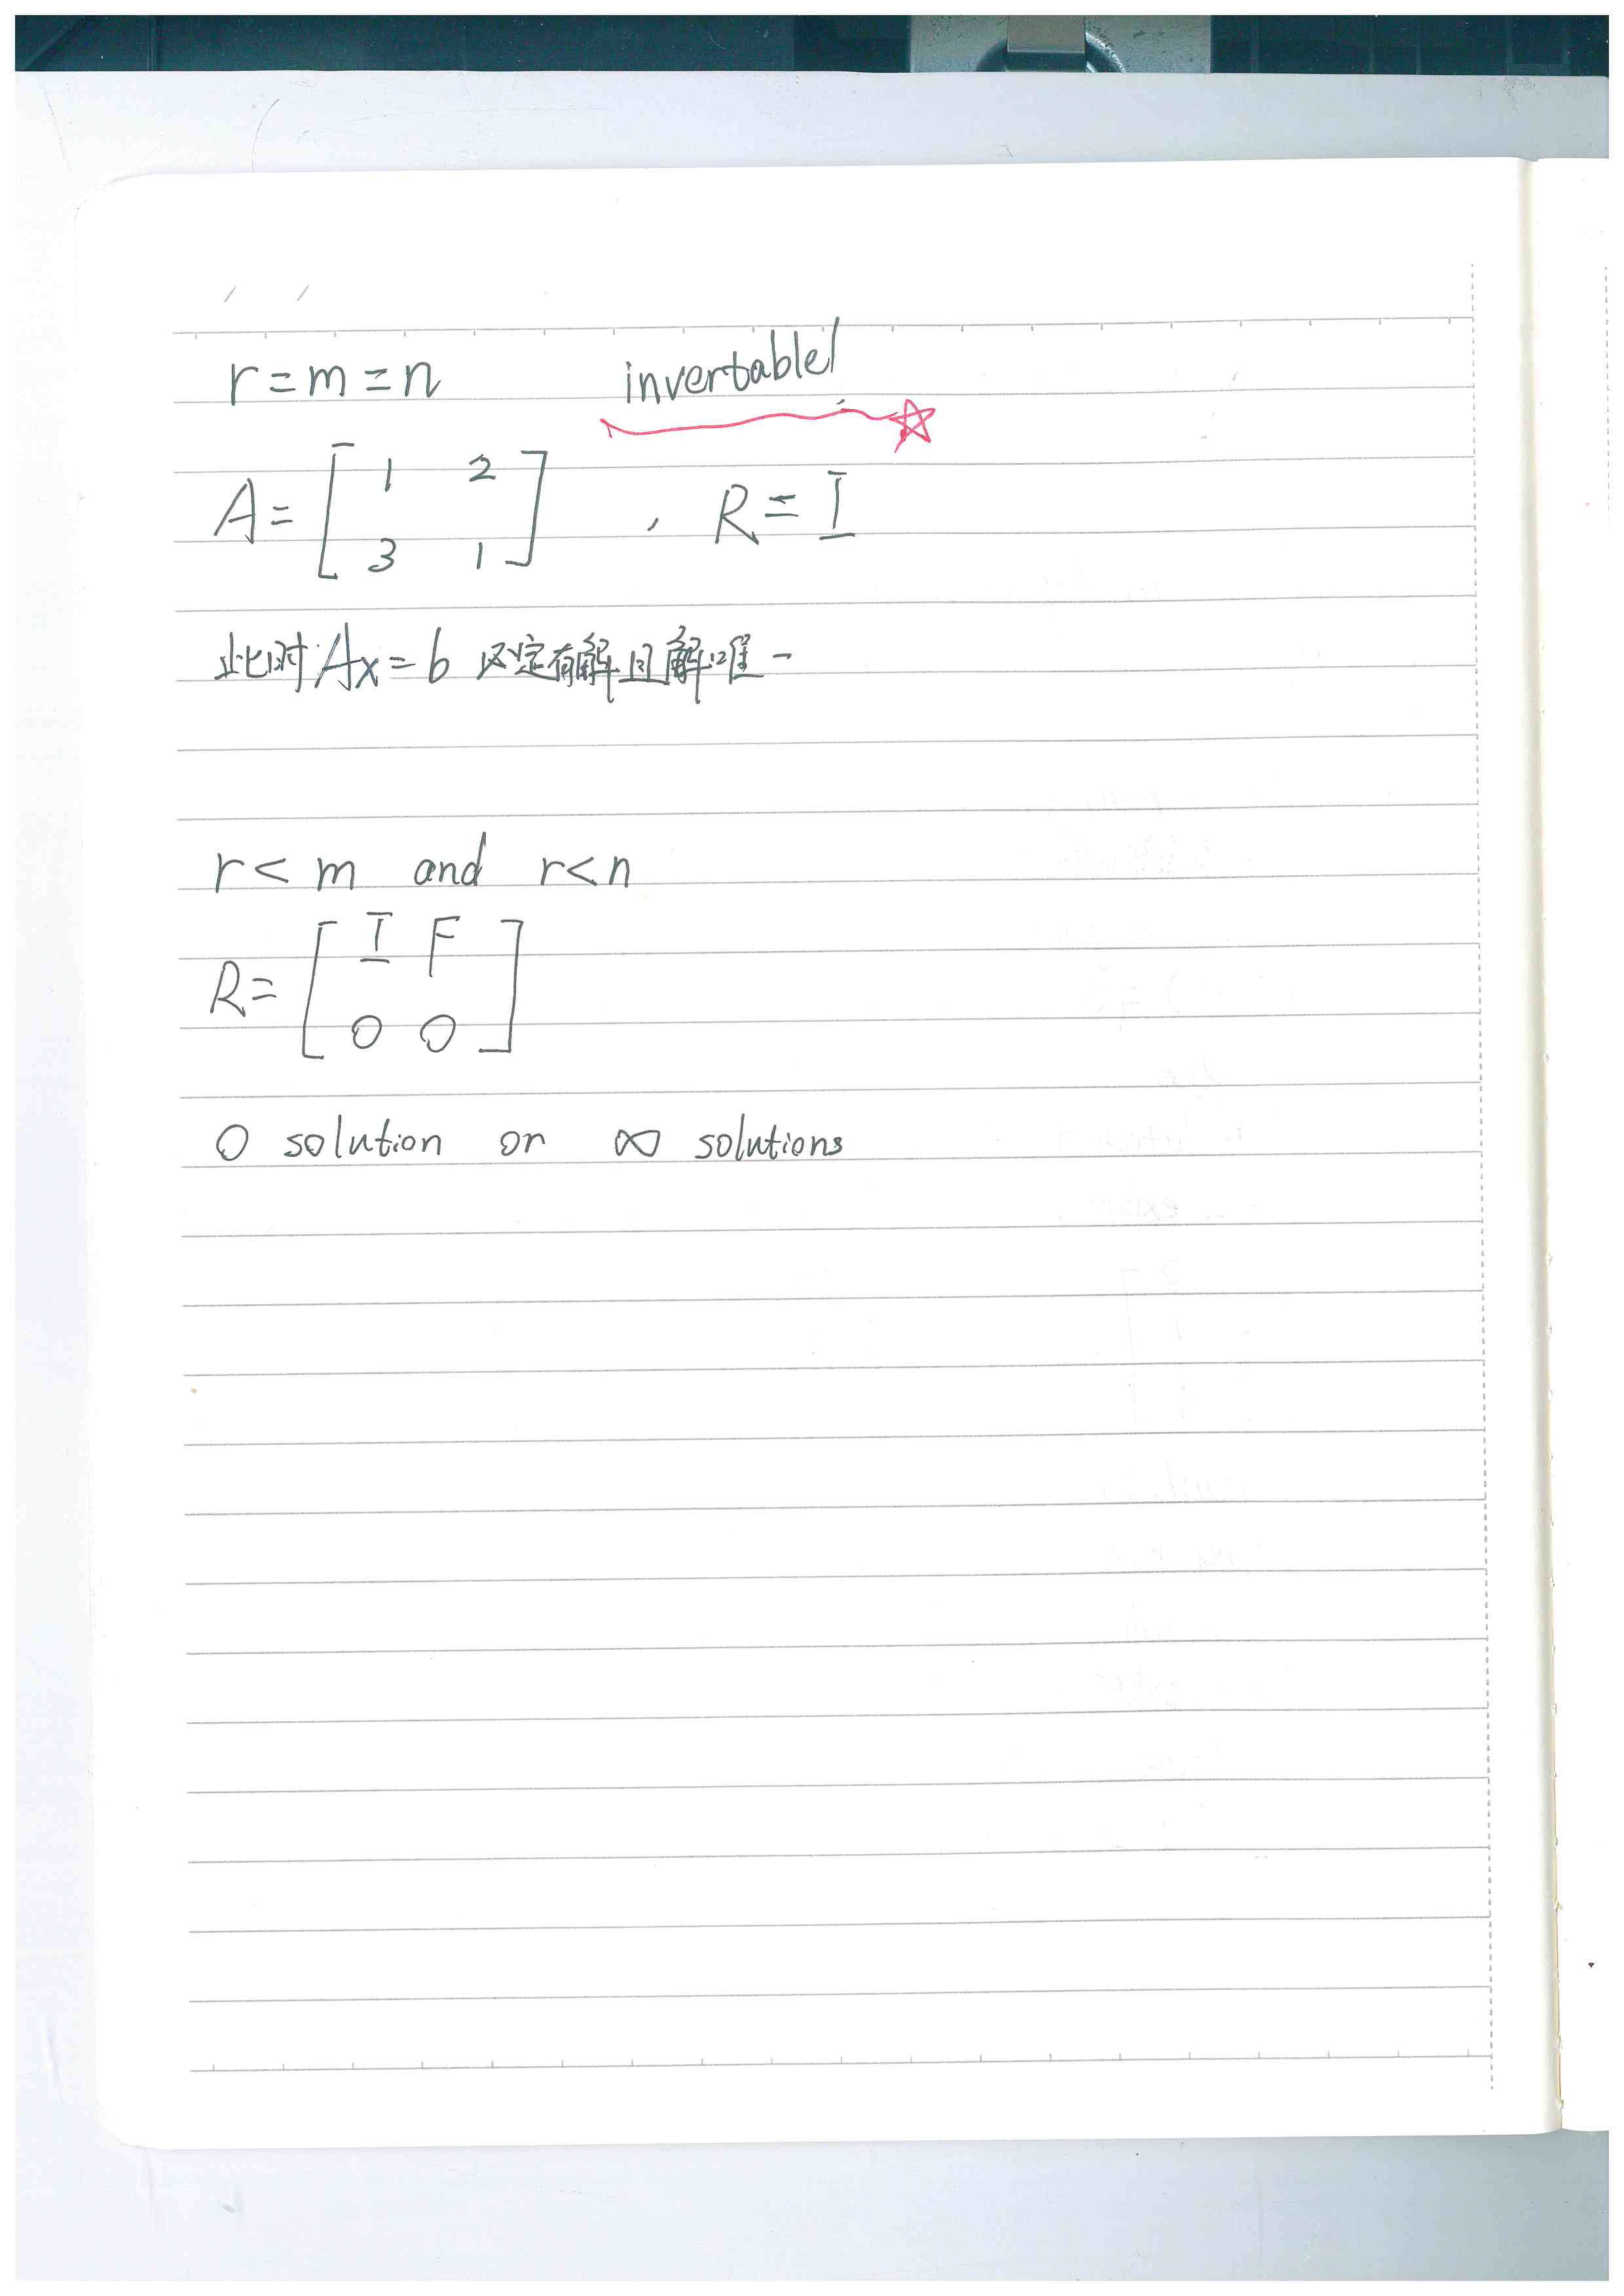 r = m = n invertable!
A = [ 1 2
3 1 ] , R = I
此时 Ax = b 必定有解且解唯一
r < m and r < n
R = [ I F
0 0 ]
0 solution or ∞ solutions